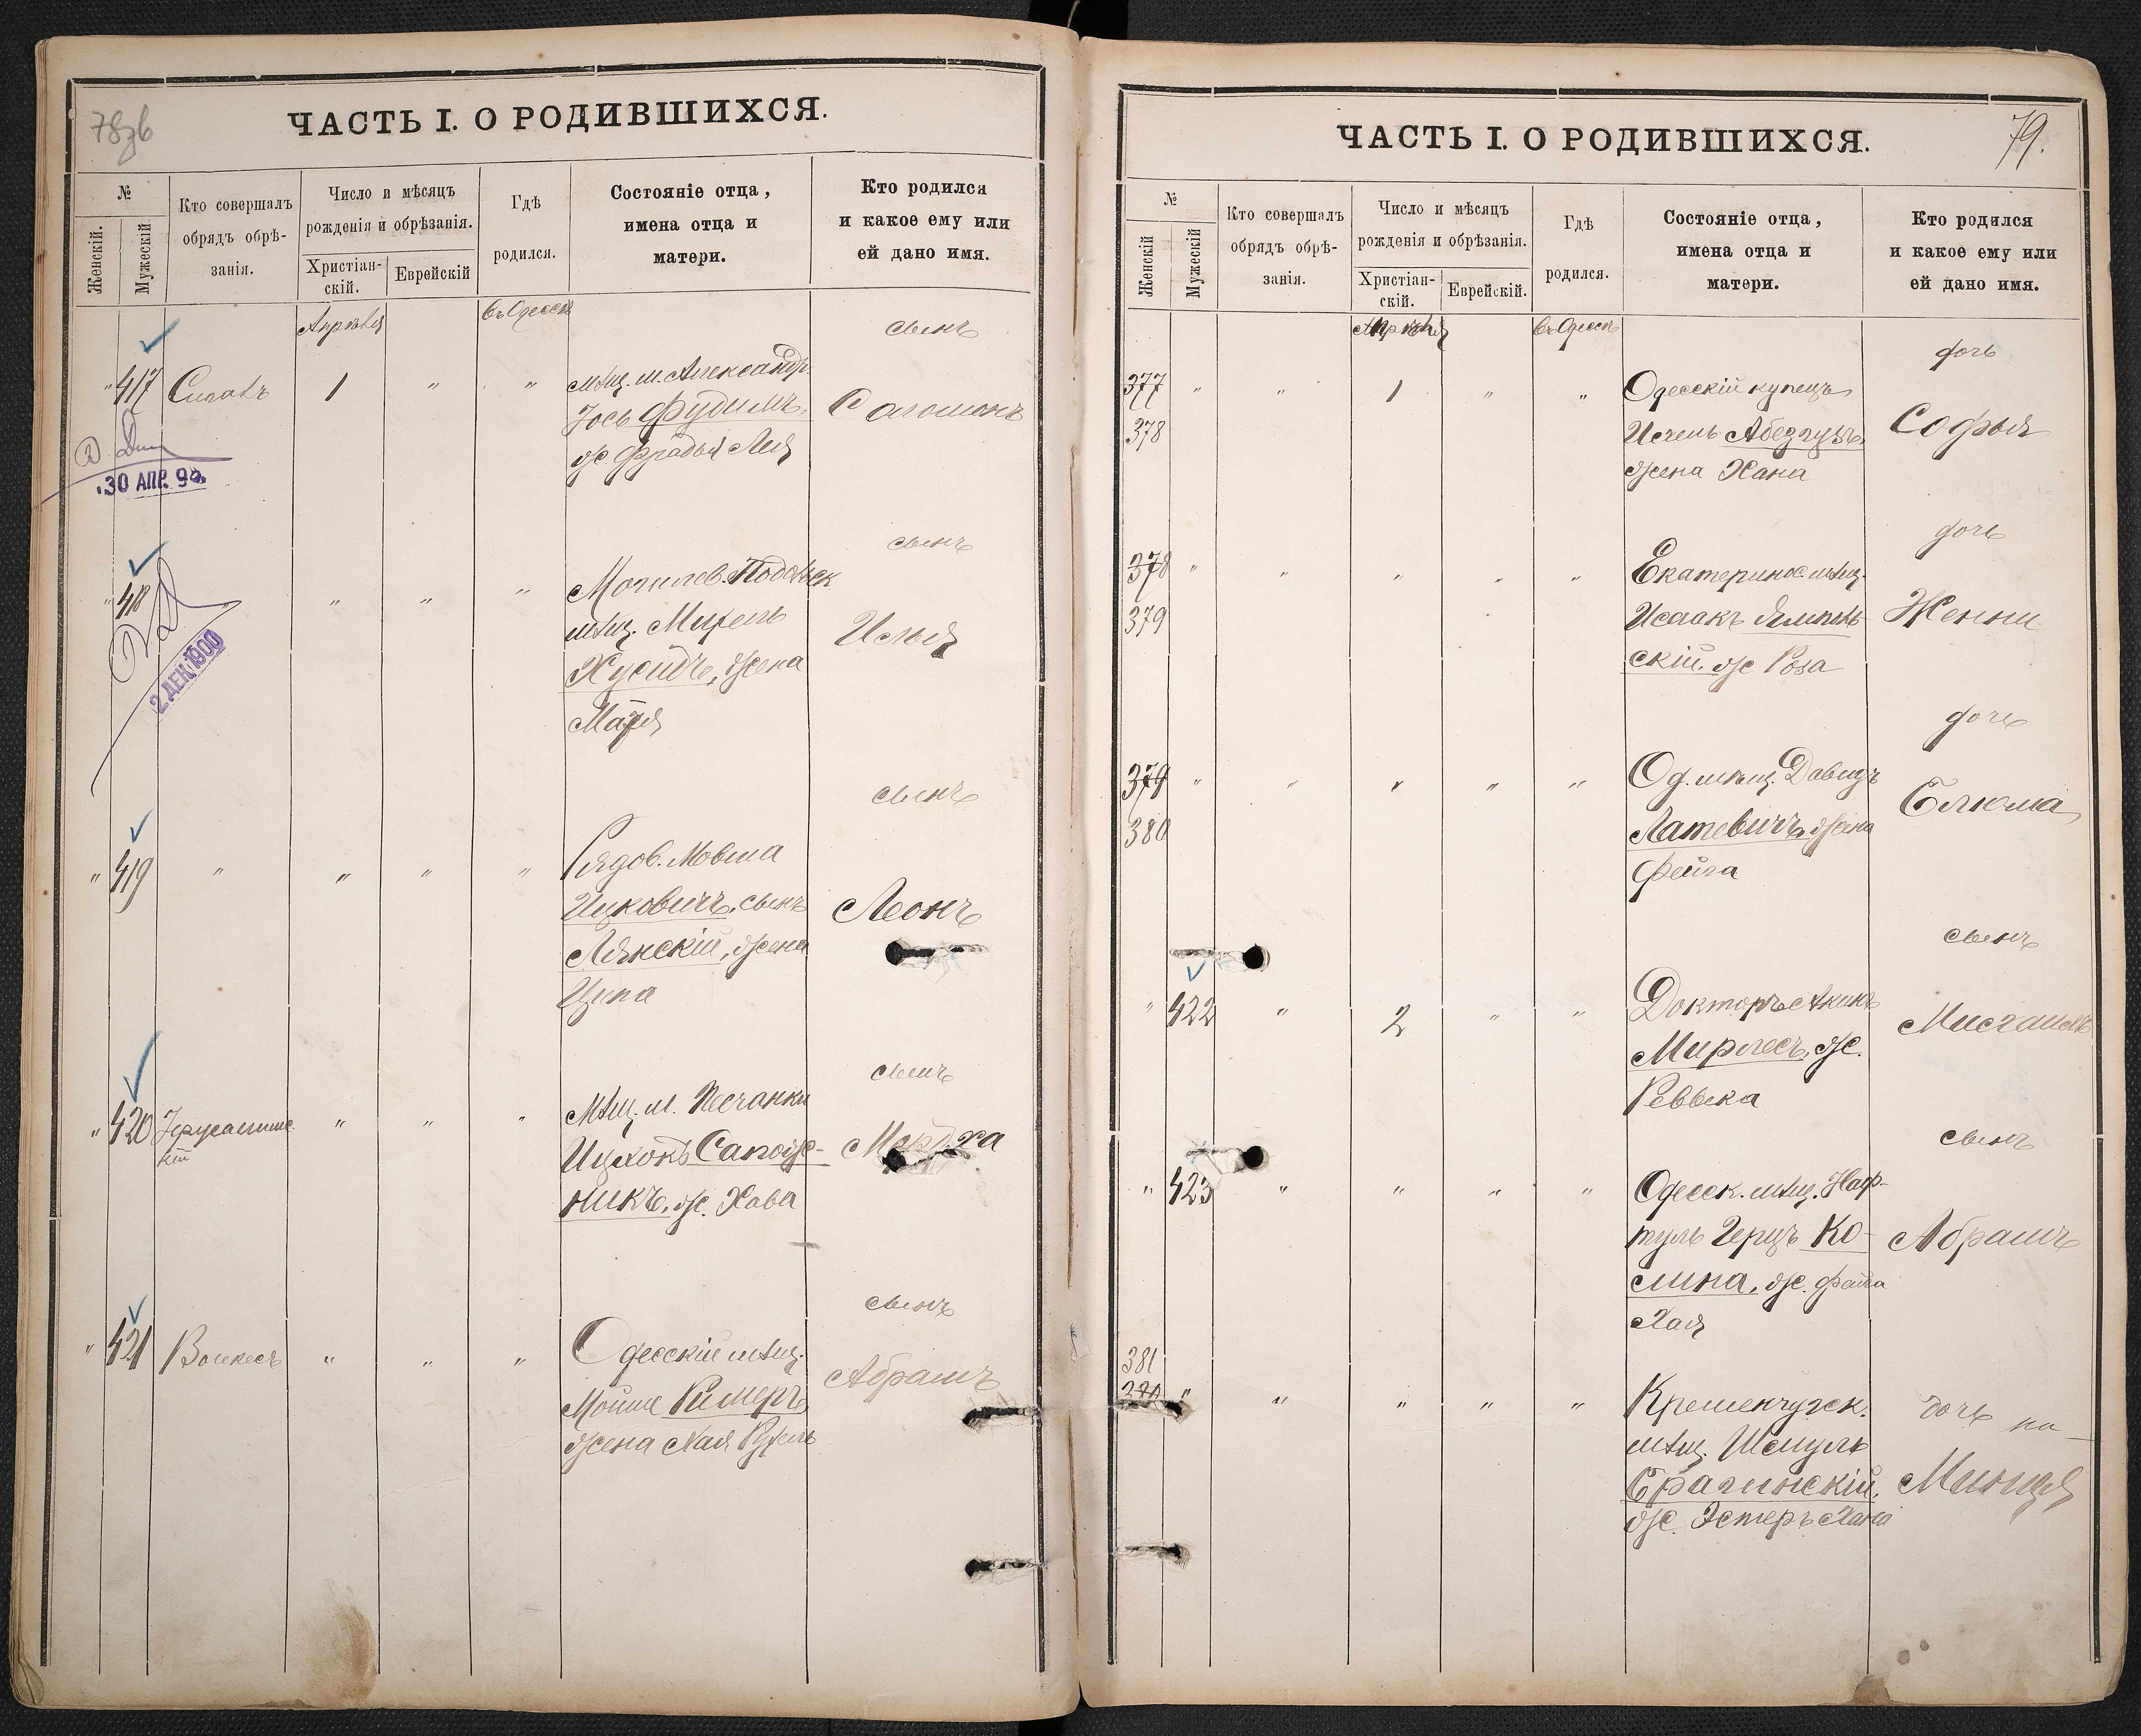 78зв
ЧАСТЬ I. О РОДИВШИХСЯ.
№
Женскій.
Мужескій
Кто совершалъ
обрядъ обрѣ-
занія.
Число и мѣсяцъ
рожденія и обрѣзанія.
Христіан-
скій.
Еврейскій
Гдѣ
родился.
Состояніе отца,
имена отца и
матери.
Кто родился
и какое ему или
ей дано имя.
Апрѣля
въ Одессѣ
сынъ
" 417
1 " "
мѣщ. м. Александр.
Іось Фудимъ,
ж. Фрадья Лея
Соломонъ
30 АПР. 98.
сынъ
" 418 " " "
Могилев. Подольск
мѣщ. Михель
Хусидъ, жена
Илья
2 ДЕК. 1900
сынъ
" 419 " " " "
Рядов. Мовша
Ицковичъ, сынъ
Лянскій, жена
Ципа
Леонъ
сынъ
" 420 Іерусалимс
кій
" " "
мѣщ. м. Песчанки
Ицхокъ Сапож-
никъ, ж. Хава
Мордха
сынъ
" 421 Волкесъ " " "
Одесскій мѣщ.
Мойше Ример,
жена Хая Рухль
Абрамъ
79.
ЧАСТЬ I. О РОДИВШИХСЯ.
№
Женскій
Мужескій
Кто совершалъ
обрядъ обрѣ-
занія.
Число и мѣсяцъ
рожденія и обрѣзанія.
Христіан-
скій.
Еврейскій.
Гдѣ
родился.
Состояніе отца,
имена отца и
матери.
Кто родился
и какое ему или
ей дано имя.
Апрѣля
въ Одессѣ
дочь
377 " " 1 " "
378
Одесскій купецъ
Исчель Абезгузъ,
жена Хана
Софья
дочь
378 " " " " "
379
Екатеринос. мѣщ.
Исаакъ Ямполь-
скій. ж Роза
Женни
дочь
379 " " " " "
380
Од. мѣщ. Давидъ
Латевичъ, жена
Фейга
Блюма
сынъ
" 422 " 2 " "
Докторъ
Мирлесъ, ж.
Реввека
Мисчаилъ
сынъ
" 423 " " " "
Одесск. мѣщ. Наф-
туль Герцъ Ко-
лина, ж. Фейга
Хая
Абрамъ
381
380 " " " " "
Кременчугск.
мѣщ. Шмуль
Брагинскій,
ж. Эстеръ Хана
дочь
Минця